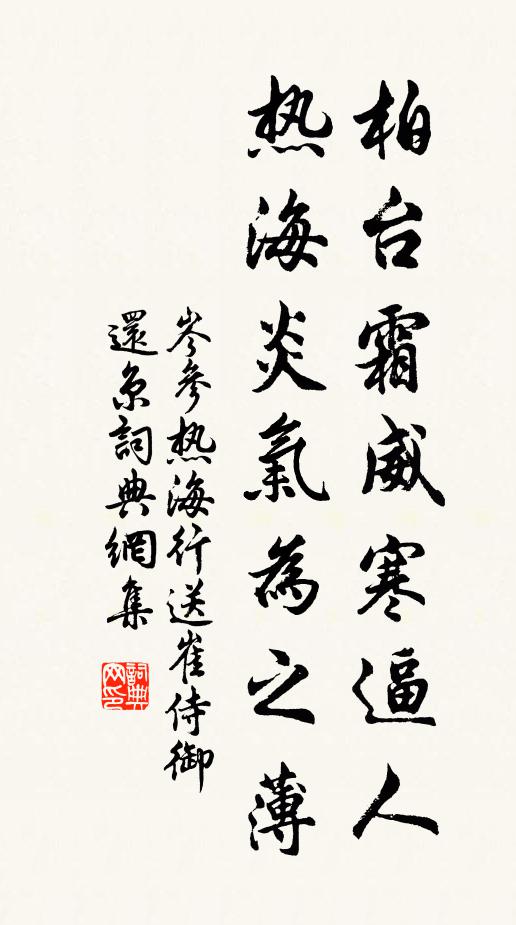 柏台霜威寒逼人
热海炎氣為之薄
岑參热海行送崔侍御
還京詞典網集
詞典网印